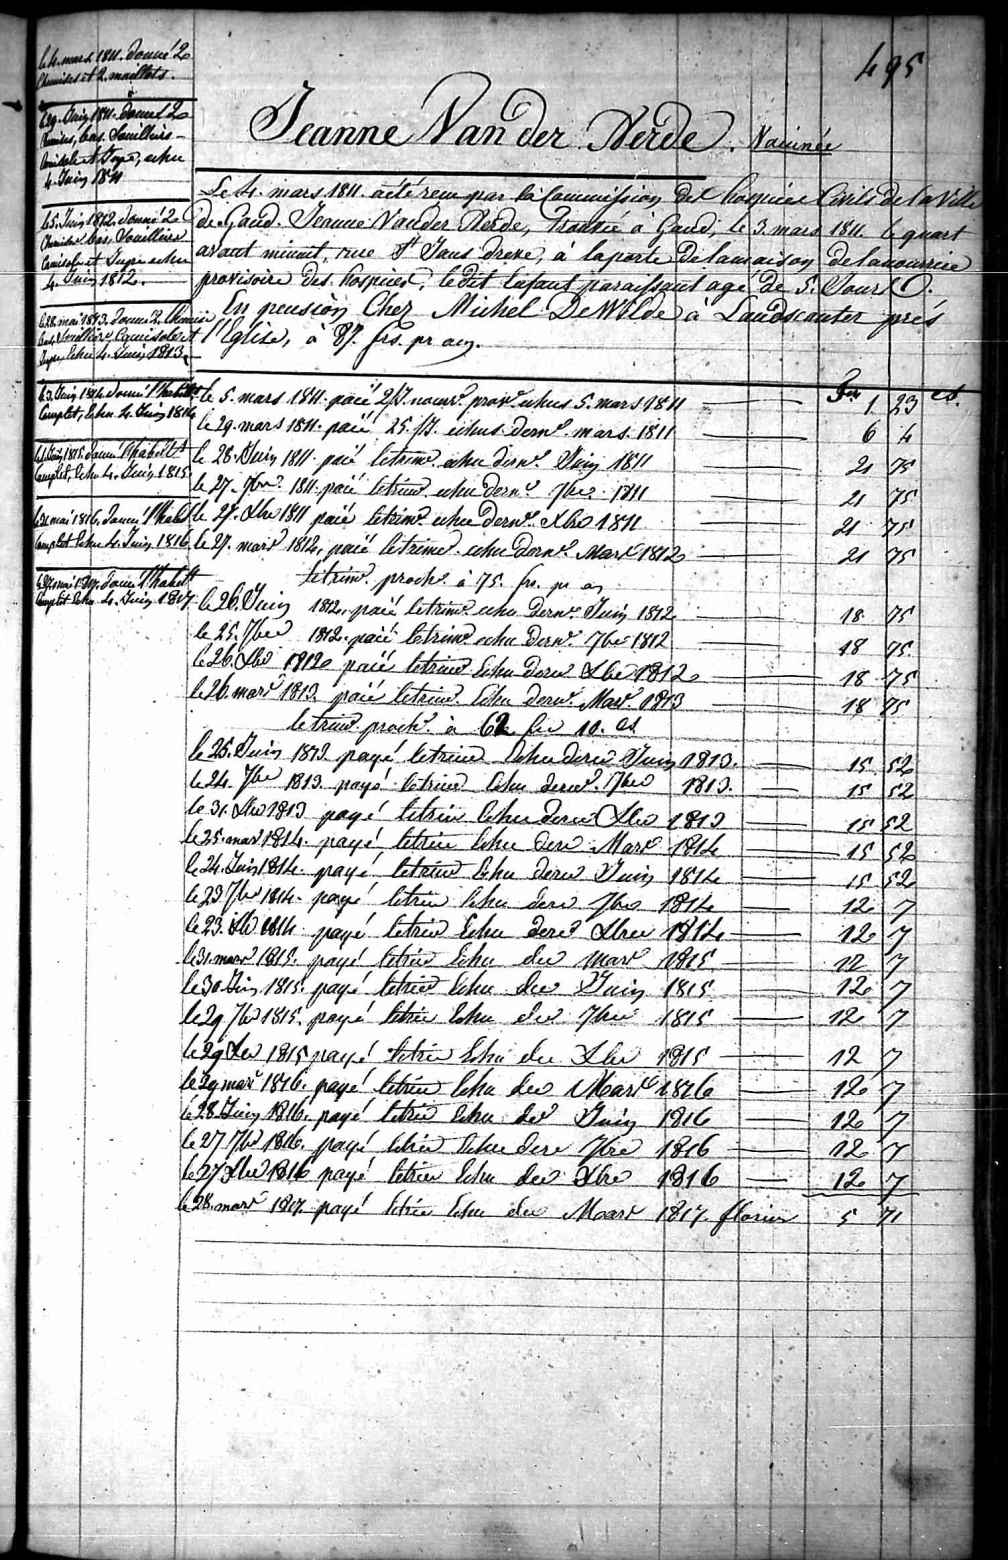 495
Jeanne Van der Aerde. Vaccinée
Le 4. mars 1811. acté reçu par la Commission des hospices Civils de la Ville
de Gand. Jeanne Van der Aerde, trouvée à Gand, le 3. mars 1811. le quart
avant minuit, rue St. Jans dreve, à la porte de la maison de la nourrice
provisoire des hospices, le dit Enfant paraissait agé de 5. Jours.
En pension Chez Michel De Wilde à Landscauter près
l'Eglise, à 87. frs. pr an.
le 4. mars 1811. donné 2
Chemises et 2. maillots.
le 29. Juin 1811. donné 2
Chemises, bas, Souilliers
Camisole et Jupe, echu
4. Juin 1811
le 5. Juin 1812. donné 2
Chemises bas Souilliers
Camisole et Jupe echu
4. Juin 1812.
le 28. mai 1813. donné 2. Chemises
bas Souilliers Camisole et
Jupe Echu 4. Juin 1813.
le 3. Juin 1814 donné 1 habilt
Complet, Echu 4. Juin 1814
1815. donné 1 habilt
Complet, Echu 4. Juin 1815
mai 1816. donné 1 habilt
Complet Echu 4. Juin 1816
mai 1817. donné 1 habilt
Complet Echu 4. Juin 1817
Frs cs.
le 5. mars 1811. paié 2/J. nourr. prov. echus 5. mars 1811 1 23
le 29. mars 1811. paié 25. /J. echus dernr. mars 1811 6 4
le 28. Juin 1811. paié le trimr. echu dernr. Juin 1811 21 75
le 27. 7bre. 1811. paié le trimr. echu dernr. 7bre 1811 21 75
le 27. Xbre 1811 paié le trimr. echu dernr. Xbre 1811 21 75
le 27. mars 1812. paié le trimr. echu dernr. Mars 1812 21 75
le trimr. prochr. à 75. frs. pr an
le 26. Juin 1812. paié le trimr. echu dernr. Juin 1812 18 75
le 25. 7bre 1812. paié le trimr. echu dernr. 7bre 1812 18 75
le 26. Xbre 1812 paié le trimr. Echu dernr Xbre 1812 18 75
le 26. mars 1813. paié le trimr. Echu dernr. Mars. 1813 18 75
le trimr. prochr. à 62 frs 10. cs
le 25. Juin 1813. payé le trimr Echu dernr Juin 1813. 15 52
le 24. 7bre 1813. payé le trimr Echu dernr. 7bre 1813. 15 52
le 31. Xbre 1813 payé le trim Echu dernr Xbre 1813 15 52
le 25. mars 1814. payé le trim Echu dern Mars 1814 15 52
le 24. Juin 1814. payé le trim Echu dern Juin 1814 15 52
le 23 7bre 1814. payé le trim Echu dern 7bre 1814 12 7
le 23. Xbre 1814. payé le trim Echu dern Xbre 1814 12 7
le 31. mars 1815. payé le trim Echu der mars 1815 12 7
le 30. Juin 1815. payé le trim Echu der Juin 1815 12 7
le 29 7bre 1815. payé le trim Echu der 7bre 1815 12 7
le 29 Xbre 1815 payé le trim Echu der Xbre 1815 12 7
le 29 mars 1816. payé le trim Echu der Mars 1816 12 7
le 28. Juin 1816. payé le trim Echu der Juin 1816 12 7
le 27 7bre 1816. payé le trim Echu dern 7bre 1816 12 7
le 27 Xbre 1816 payé le trim Echu der Xbre 1816 12 7
le 28. mars 1817. payé le trim Echu der Mars 1817. florins 5 71